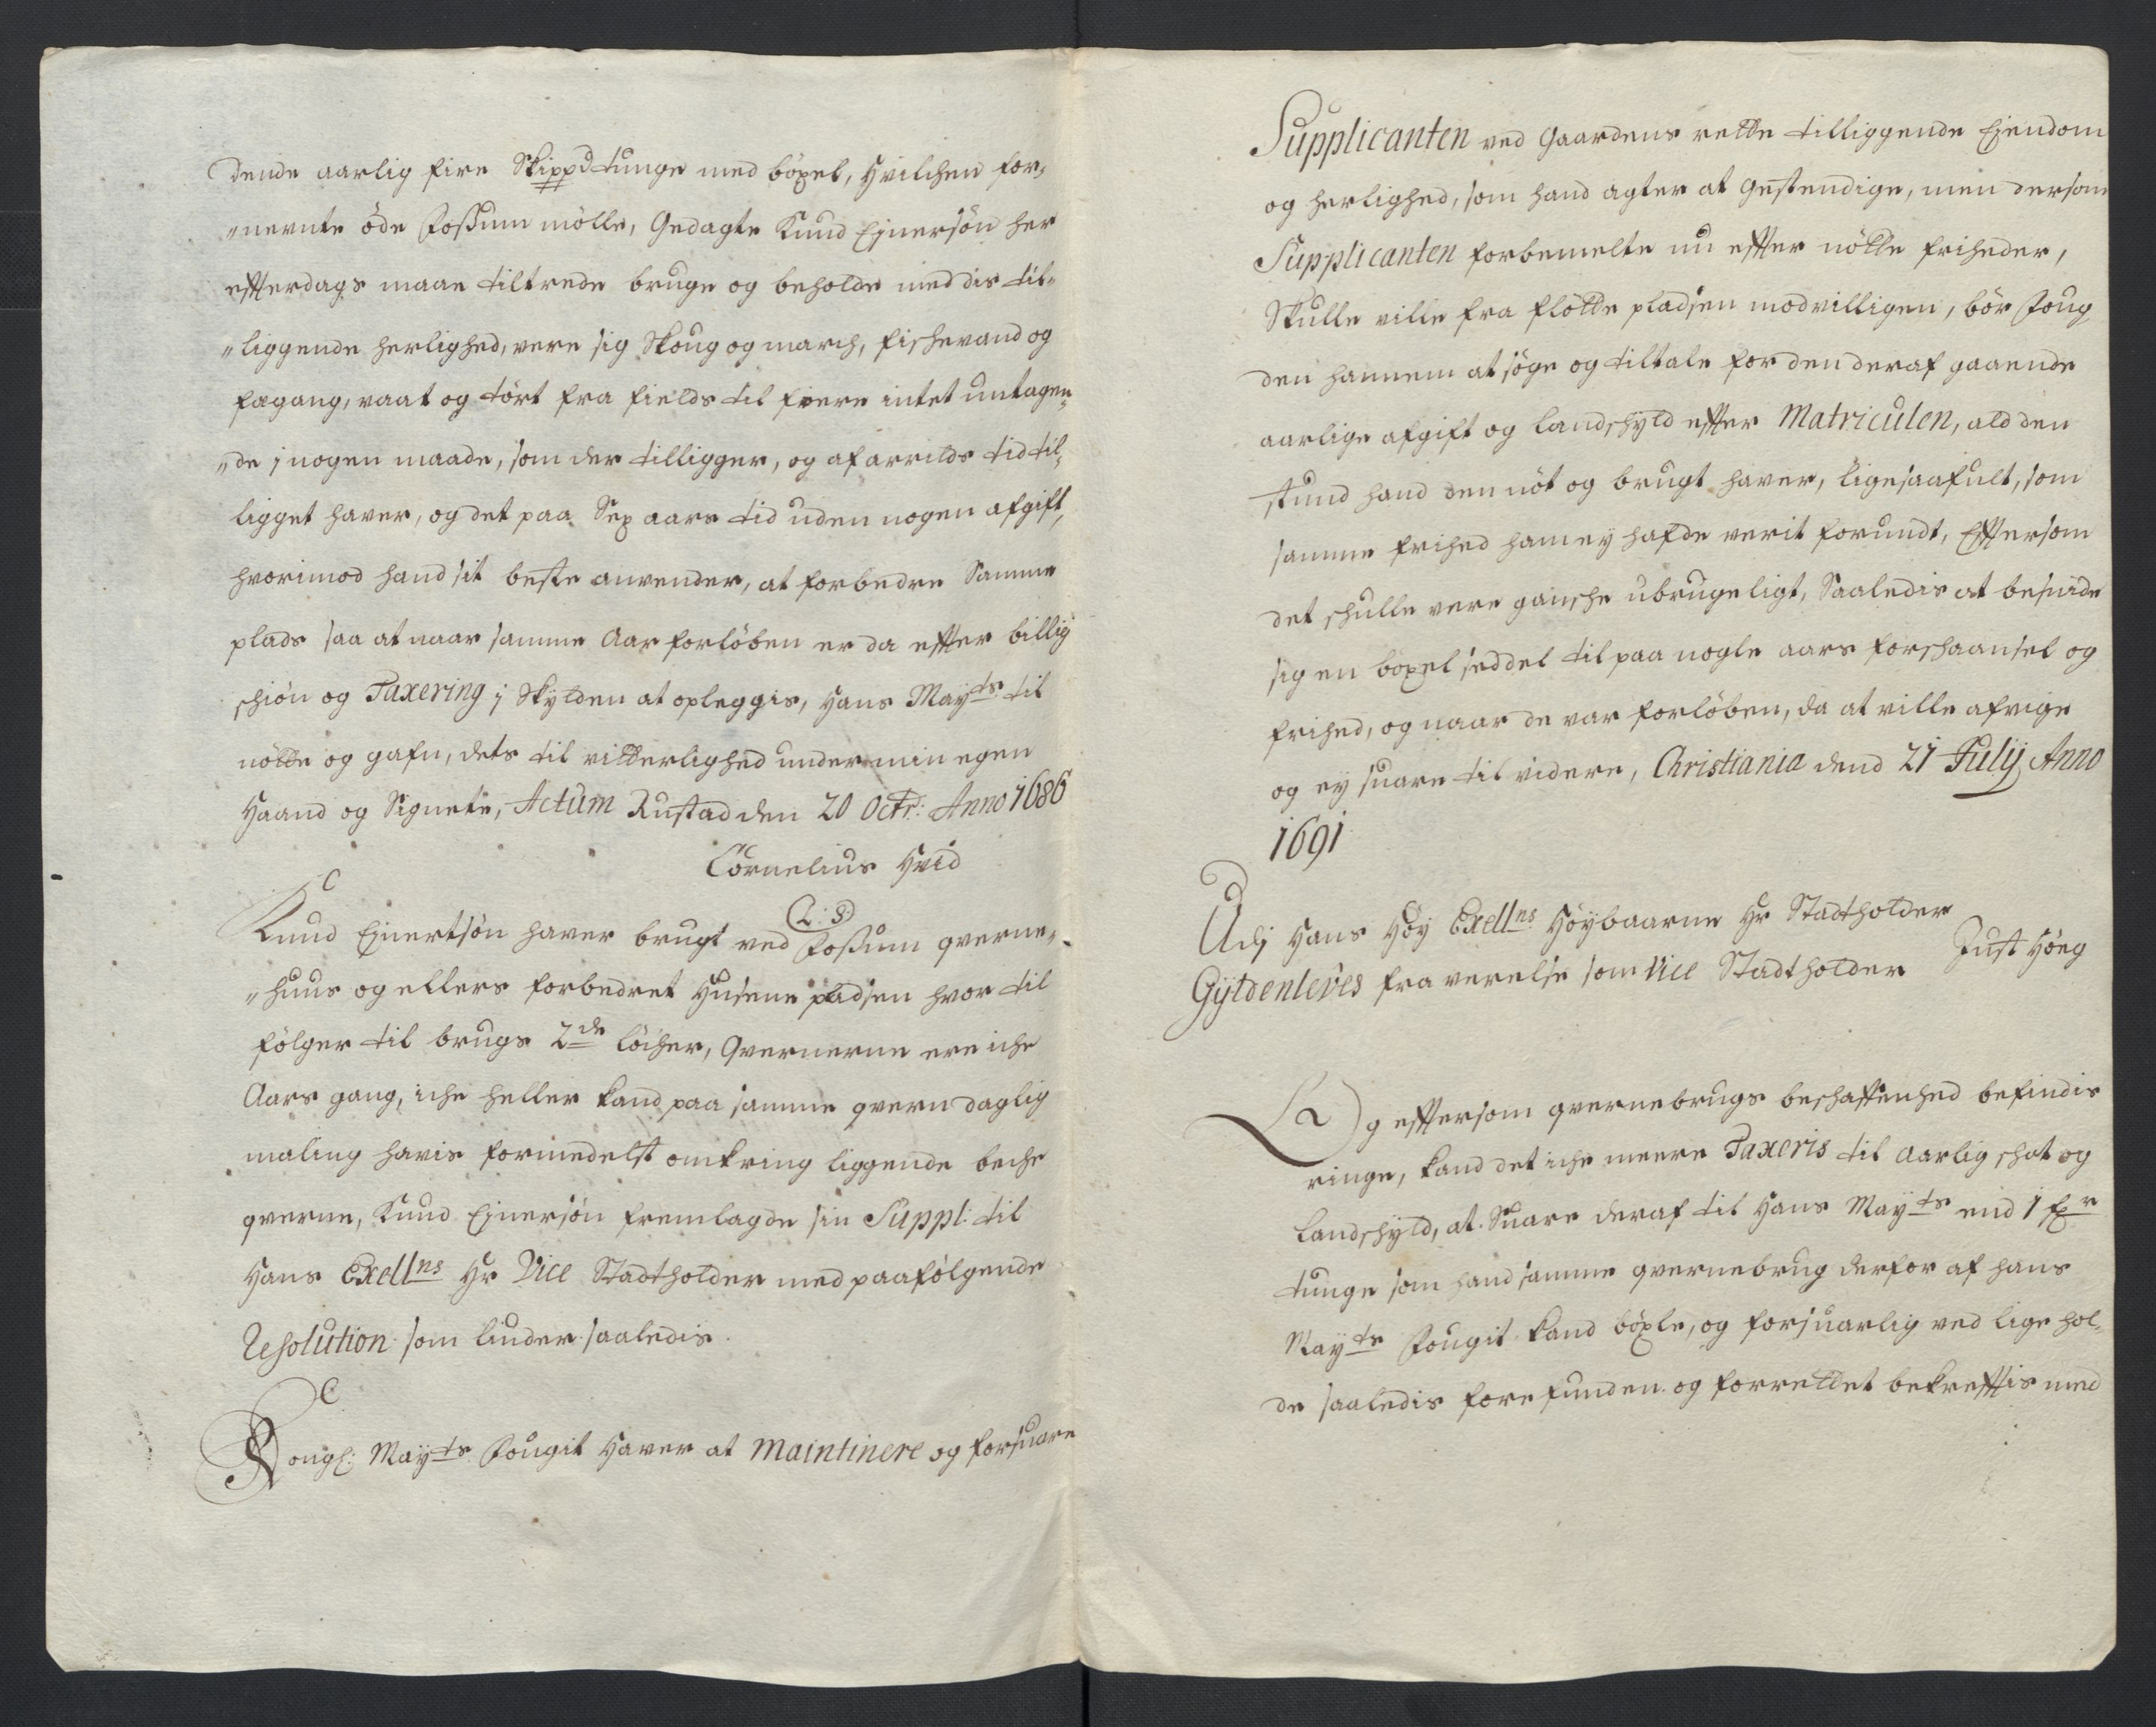 dende aarlig fire Skippd tunge med böxel, Hvilchen for„
„nevnte öde Fossum mölle, Gedagte Knud Ejnersön her
effterdags maae tiltrede bruge og beholde med dis til„
„liggende herlighed, vere sig Skoug og march, fischevand og
fægang, vaat og tört fra fields til fiere intet untagen„
„de j nogen maade, som der tilligger, og af arrilds tid til„
ligget haver, og det paa Sex aars tid uden nogen afgift,
hvorimod hand sit beste anvender, at forbedre Samme
plads saa at naar samme Aar forlöben er da effter billig
schiön og Taxering j Skylden at opleggis, Hans Mayts til
nötte og gafn, dets til vitterlighed under min egen
Haand og Signete, Actum Rustad den 20 Octr: Anno 1686
Cornelius Hvid
(L: S)
Knud Ejnertsön haver brugt ved Fossum qverne„
„huus og ellers forbedret Husene pladsen hvor til
fölger til brugs 2de löcher, Qvernerne ere iche
Aars gang, iche heller kand paa samme qvern daglig
maling havis formedelst omkring liggende beche
qverne, Knud Ejnersön fremlagde sin Suppl: til
Hans Exellns Hr Vice Stadtholder med paafölgende
Resolution som liuder saaledis.
Kongl: Mayts Fougit Haver at Maintinere og forsuare
Supplicanten ved Gaardens rette tilliggende Ejendom
og herlighed, som hand agter at gestendige, men dersom
Supplicanten forbemelte nu effter nötte friheder,
Skulle ville fra flötte pladsen modvilligen, bör Foug
den hannem at söge og tiltale for den deraf gaaende
aarlige afgift og landschyld effter Matriculen, ald den
stund hand den nöt og brugt haver, ligesaafult, som
samme frihed ham ej hafde verit forundt, Efftersom
det schulle vere gansche ubrugeligt, Saaledis at besnide
sig en böxel seddel til paa nogle aars forschaansel og
frihed, og naar de var forlöben, da at ville afvige
og ej suare til videre, Christiania dend 21 Julij Anno
1691
Udj Hans Höy Exellns Höybaarne Hr Stadtholder
Gyldenleves fra verelse som Vice Stadtholder Just Höeg
Og efftersom qvernebrugs beschaffenhed befindis
ringe, kand det iche meere Taxeris til Aarlig schat og
landschyld, at Suare deraf til Hans Mayts end 1 fxr
tunge som hand samme qvernebrug derfor af hans
Mayts Fougit kand böxle, og forsuarlig ved lige hol„
de saaledis forefunden og forrettet bekrefftis med